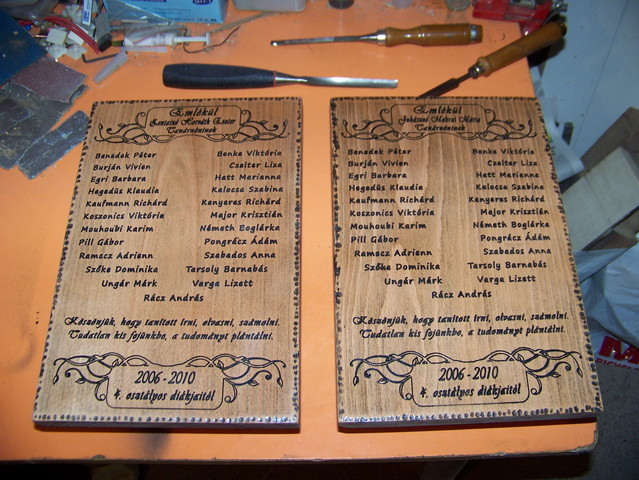 Emlékül
Szatainé Horváth Eszter
Tanárnéninek
Benedek Péter Benke Viktória
Burján Vivien Czelter Liza
Egri Barbara Hatt Marianna
Hegedüs Klaudia Kalocsa Szabina
Kaufmann Richárd Kenyeres Richárd
Koszonics Viktória Major Krisztián
Mouhoubi Karim Németh Boglárka
Pill Gábor Pongrácz Ádám
Ramacz Adrienn Szabados Anna
Szőke Dominika Tarsoly Barnabás
Ungár Márk Varga Lizett
Rácz András
Köszönjük, hogy tanított írni, olvasni, számolni.
Tudatlan kis fejünkbe, a tudományt plántálni.
2006-2010
4. osztályos diákjaitól
Emlékül
Juhászné Makrai Mária
Tanárnéninek
Benedek Péter Benke Viktória
Burján Vivien Czelter Liza
Egri Barbara Hatt Marianna
Hegedüs Klaudia Kalocsa Szabina
Kaufmann Richárd Kenyeres Richárd
Koszonics Viktória Major Krisztián
Mouhoubi Karim Németh Boglárka
Pill Gábor Pongrácz Ádám
Ramacz Adrienn Szabados Anna
Szőke Dominika Tarsoly Barnabás
Ungár Márk Varga Lizett
Rácz András
Köszönjük, hogy tanított írni, olvasni, számolni.
Tudatlan kis fejünkbe, a tudományt plántálni.
2006-2010
4. osztályos diákjaitól